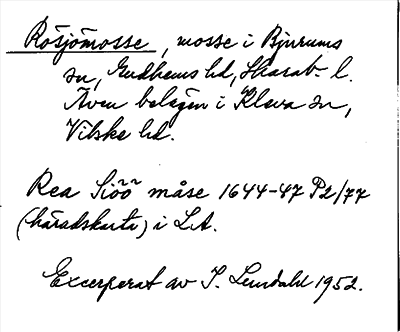 Rösjömosse, mosse i Bjurums
sn, Gudhems hd, Skarab. l.
Även belägen i Kleva sn,
Vilske hd.
Rea Siöö måse 1644-47 P2/77
(häradskarta) i LA.
Excerperat av I. Lundahl 1952.